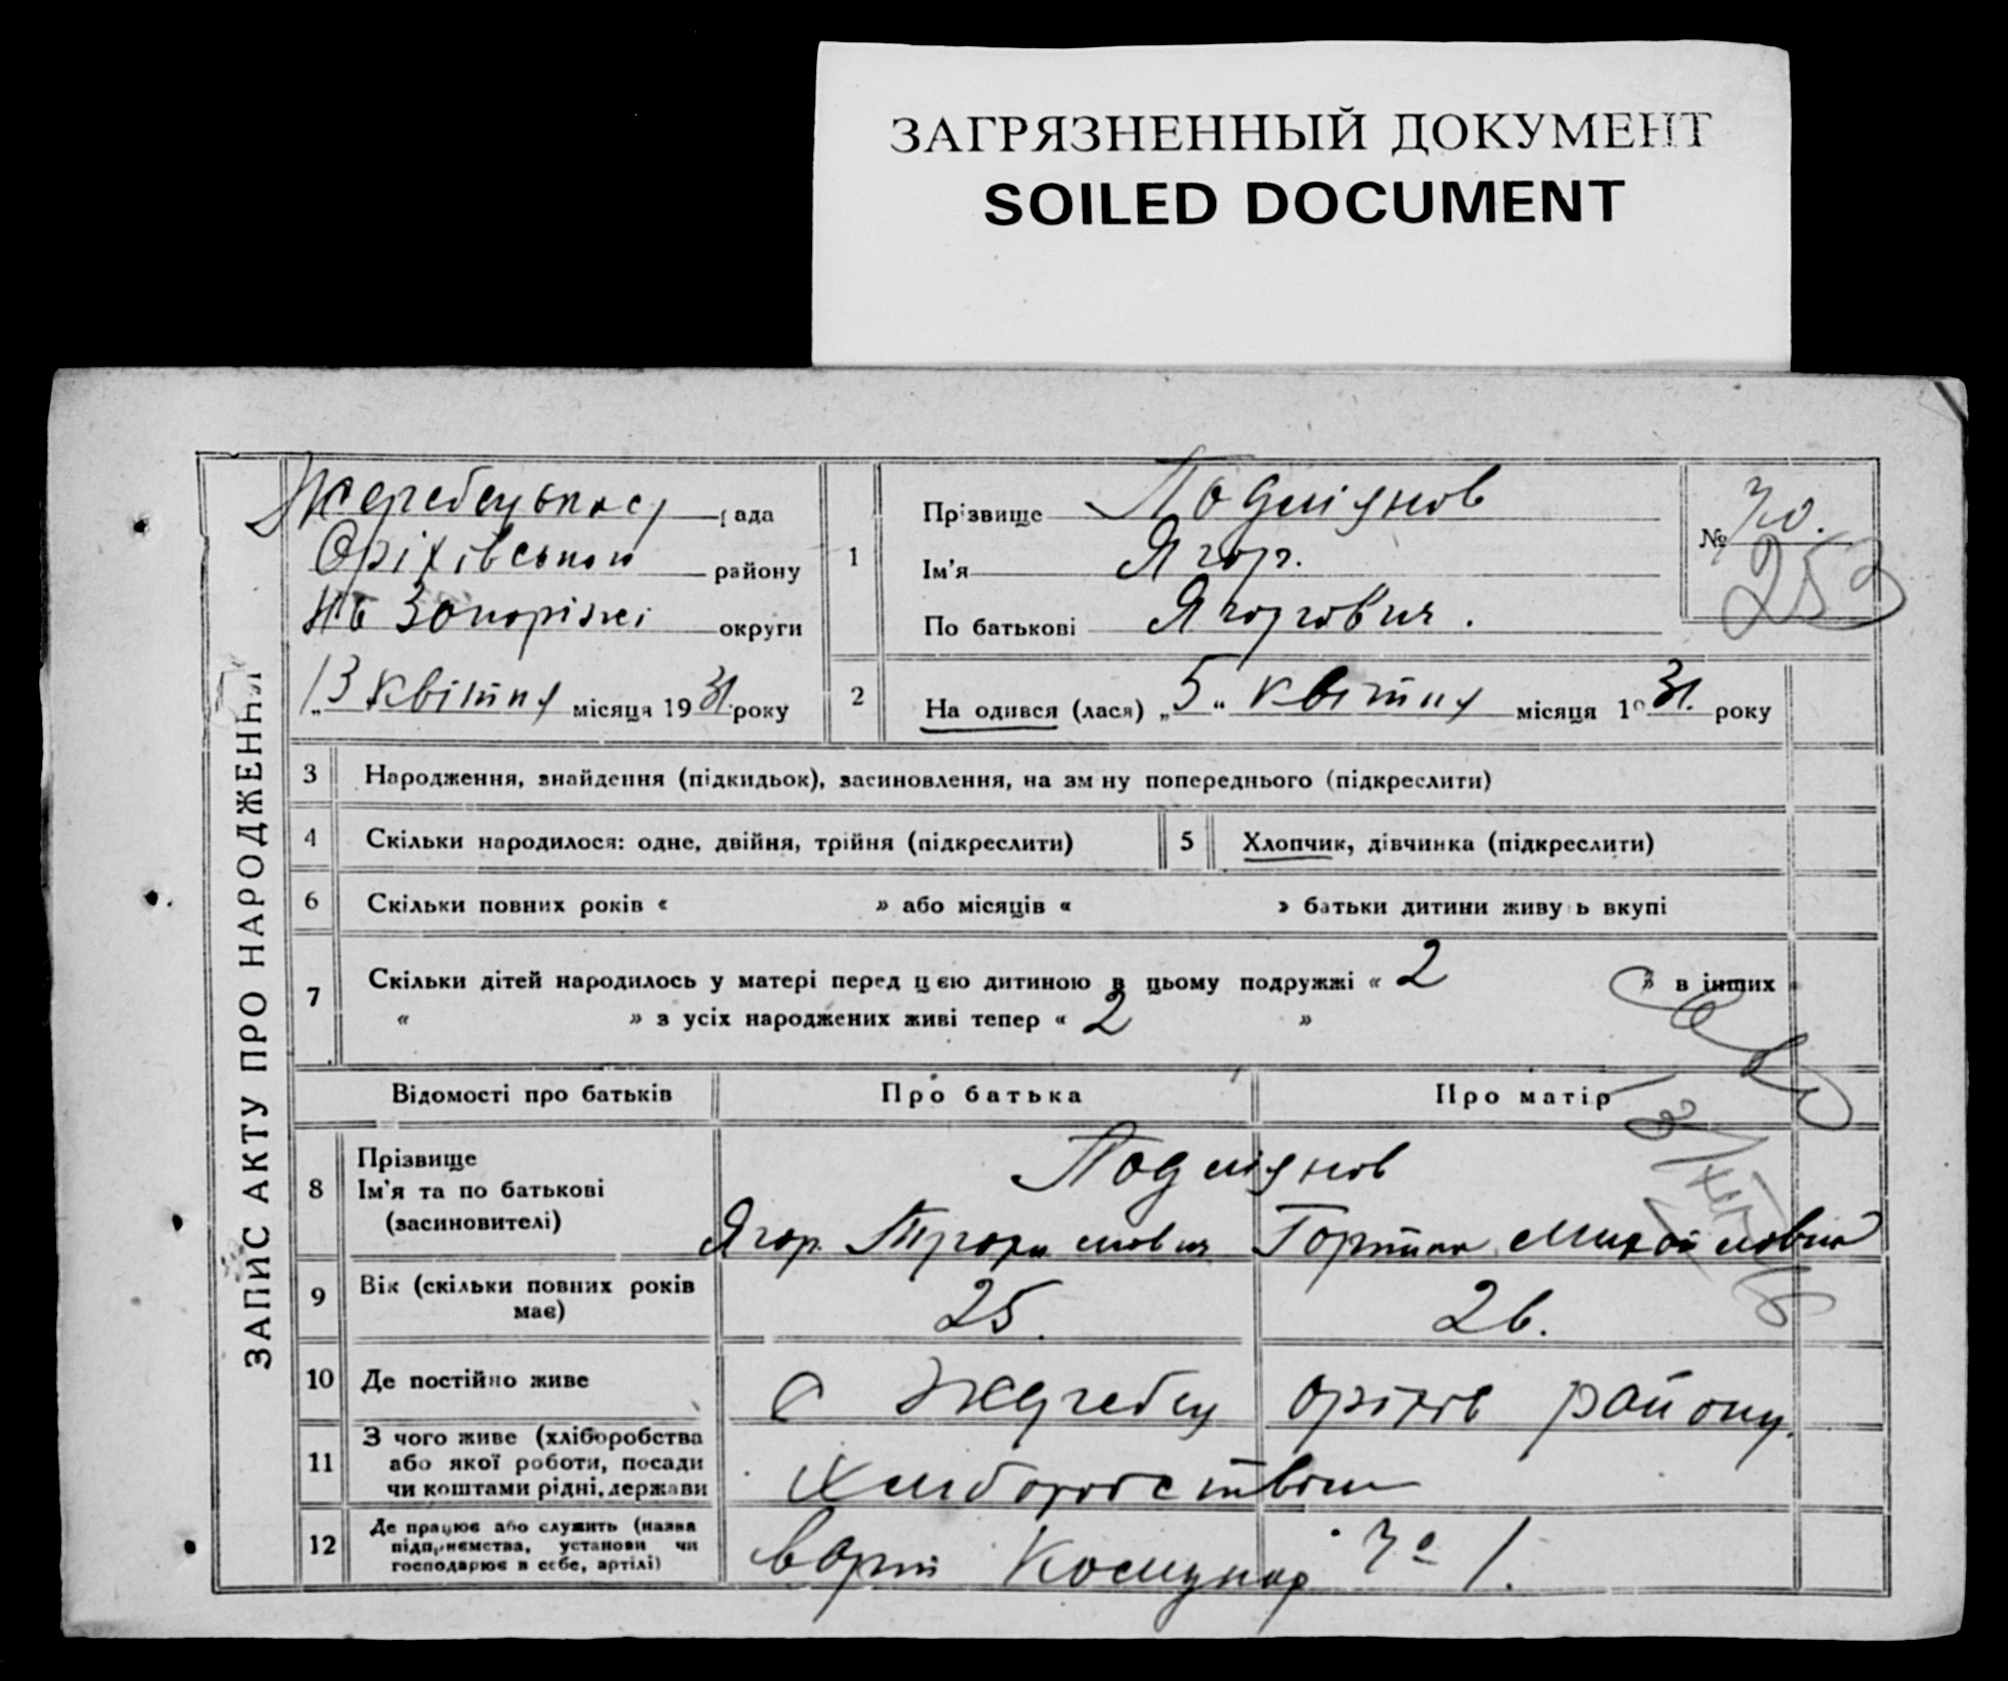 ЗАГРЯЗНЕННЫЙ ДОКУМЕНТ
SOILED DOCUMENT
ЗАПИС АКТУ ПРО НАРОДЖЕННЯ
рада
Оріхівського району
округи
13 квітня місяця 1931 року
1
Прізвище
Ім'я Ягор.
По батькові Ягорович.
№ 70.
253
2
На одився (лася) „5“ квітня місяця 1931. року
3 Народження, знайдення (підкидьок), засиновлення, на зм ну попереднього (підкреслити)
4 Скільки народилося: одне, двійня, трійня (підкреслити)
5 Хлопчик, дівчинка (підкреслити)
6 Скільки повних років « » або місяців « » батьки дитини живу ь вкупі
7 Скільки дітей народилось у матері перед цією дитиною в цьому подружжі « 2 » в інших «
« » з усіх народжених живі тепер « 2 »
Відомості про батьків Про батька Про матір
8 Прізвище
Ім'я та по батькові
(засиновителі)
Ягор
9 Вік (скільки повних років має) 25. 26.
10 Де постійно живе с Жеребец оріхів району.
11 З чого живе (хліборобства або якої роботи, посади чи коштами рідні, держави
Хліборобством
12 Де працює або служить (назва підприємства, установи чи господарює в себе, артілі)
в арт Комунар № 1.